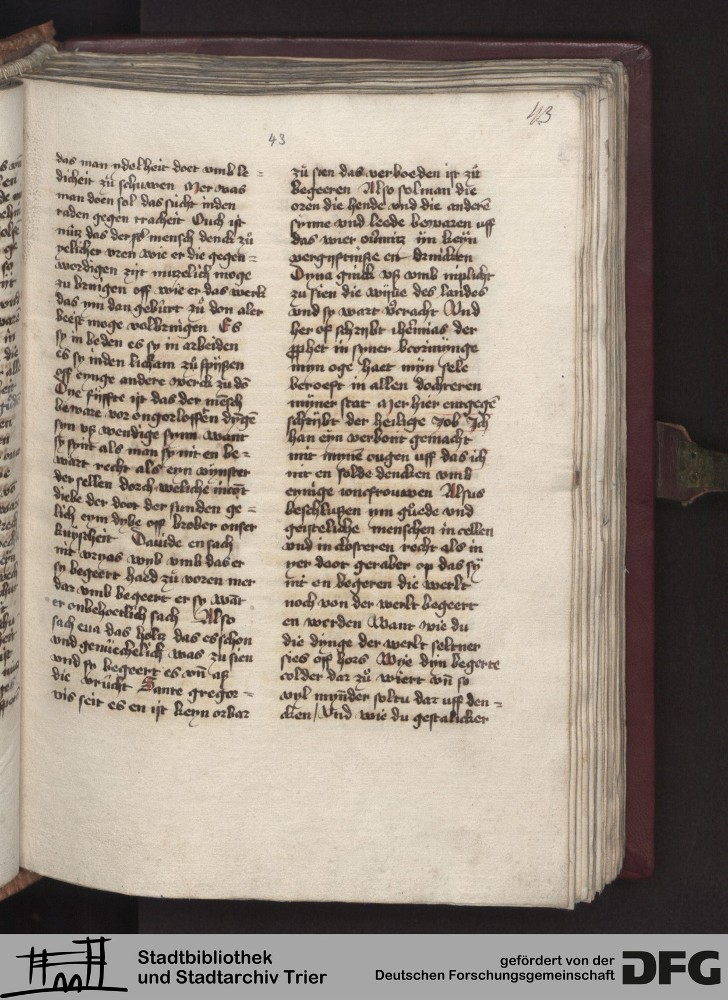 43
43
das man ydelheit doet vmb le=
dicheit zů schuwen Mer was
man doen sol das sucht inden
raden gegen tracheit Ouch ist
nütz das der sel mensch denck zů
zelicher vren wie er die gegen=
wordigen zijt nutzelich moge
zu brengen off wie er das werk
das ym dan geburt zů don aler
beest moge volbringen Es
sy in beden es sy in arbeiden
es sy inden licham zů spijsen
off eynge andere werck zu dů
Die fünffte ist das der mēsch
beware vor ongorloffen dȳgē
syn vß wendige synn want
sy synt als man sy nit en be=
wart recht als eyn vynster
der sellen dorch weliche incōt
diebe der doot der sunden ge=
lich eym dybe off brober onser
kuyscheit Dauide en sach
nit vryas wyb vmb das er
sy begeert haed zů voren mer
dar vmb begeert er sy wāt
er onbehoetlich sach Also
sach eua das holtz das es schon
vnd genüechelich was zu sien
vnd sy begeert es vn̄ aß
die vrucht Sante gregor=
vis seit es en ist keyn orbar
zů sien das verboeden ist zů
begeeren Also sol man die
oren die hende vnd die anderē
synne vnd leede bewaren uff
das wier důrnitz im keyn
vergyftniße en drincken
Dyna ginck vß vmb niplicht
zu sien die wijue des landes
vnd sy wart vcracht Vnd
her of schrijbt ihēmias der
ꝓphet in syner beormynge
myn oge haet mijn sele
beroeft in allen dochteren
mijner stat Mer hier entgegē
schrijbt der heilige Job Ich
han eyn verbont gemacht
mit mynē ougen uff das ich
nit en solde dencken vmb
eynige ioncfrouwen Alsus
beschlußen ym guede vnd
geisteliche menschen in cellen
vnd in closteren recht als in
yer doot geraber op das sÿ
nit en begeren die werlt
noch von der werlt begeert
en werden Want wie du
die dynge der werlt seltner
sies off hors Wye dijn begerte
colder dar zů wiert vn̄ so
vyl mynder soltu dar uff den=
cken / Vnd wie du gestalicker
Stadtbibliothek
und Stadtarchiv Trier
gefördert von der
Deutschen Forschungsgemeinschaft
DFG